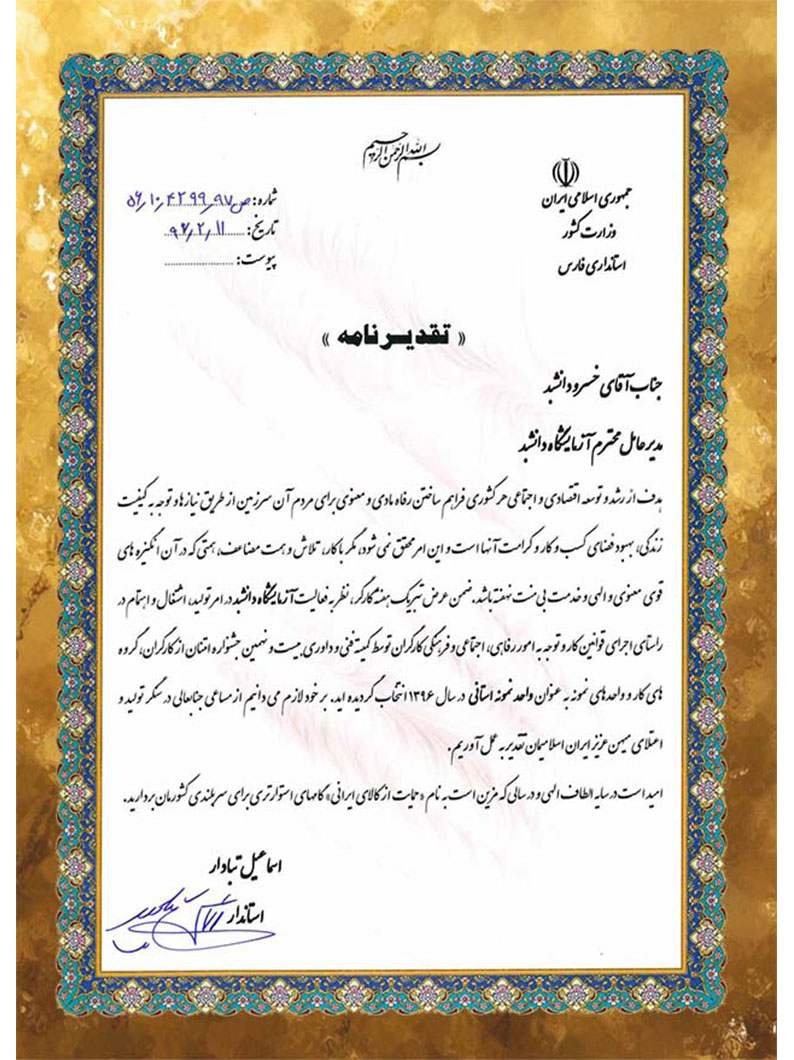 بسم الله الرحمن الرحیم
جمهوری اسلامی ایران
وزارت کشور
استانداری فارس
شماره: ص/۹۷/۴۲۹۹/۱۰/۵۶
تاریخ: ۹۷/۲/۱۱
پیوست: ....................
« تقدیرنامه »
جناب آقای خسرو دانشبد
مدیرعامل محترم آزمایشگاه دانشبد
هدف از رشد و توسعه اقتصادی و اجتماعی هر کشوری فراهم ساختن رفاه مادی و معنوی برای مردم آن سرزمین از طریق نیازها و توجه به کیفیت
زندگی، بهبود فضای کسب و کار و کرامت آنها است و این امر محقق نمی شود، مگر با کار، تلاش و همت مضاعف، همتی که در آن انگیزه های
قوی معنوی و الهی و خدمت بی منت نهفته باشد. ضمن عرض تبریک هفته کارگر، نظر به فعالیت آزمایشگاه دانشبد در امر تولید، اشتغال و اهتمام در
راستای اجرای قوانین کار و توجه به امور رفاهی، اجتماعی و فرهنگی کارگران توسط کمیته فنی و داوری بیست و نهمین جشنواره امتنان از کارگران، گروه
های کار و واحدهای نمونه به عنوان واحد نمونه استانی در سال ۱۳۹۶ انتخاب گردیده اید. بر خود لازم می دانیم از مساعی جنابعالی در سنگر تولید و
اعتلای میهن عزیز ایران اسلامیمان تقدیر به عمل آوریم.
امید است در سایه الطاف الهی و در سالی که مزین است به نام «حمایت از کالای ایرانی» گامهای استوارتری برای سربلندی کشورمان بردارید.
اسماعیل تبادار
استاندار